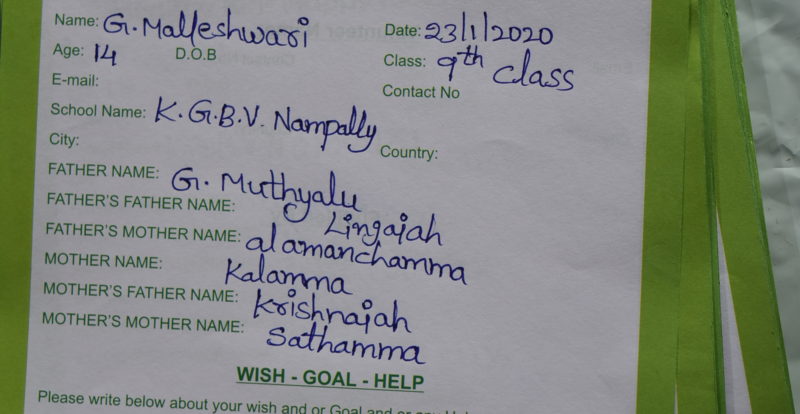 Name: G. Malleshwari Date: 23/1/2020
Age: 14 D.O.B Class: 9th class
E-mail: Contact No
School Name: K.G.B.V. Nampally
City: Country:
FATHER NAME: G. Muthyalu
FATHER'S FATHER NAME: Lingaiah
FATHER'S MOTHER NAME: alamanchamma
MOTHER NAME: Kalamma
MOTHER'S FATHER NAME: Krishnaiah
MOTHER'S MOTHER NAME: Sathamma
WISH - GOAL - HELP
Please write below about your wish and or Goal and or any